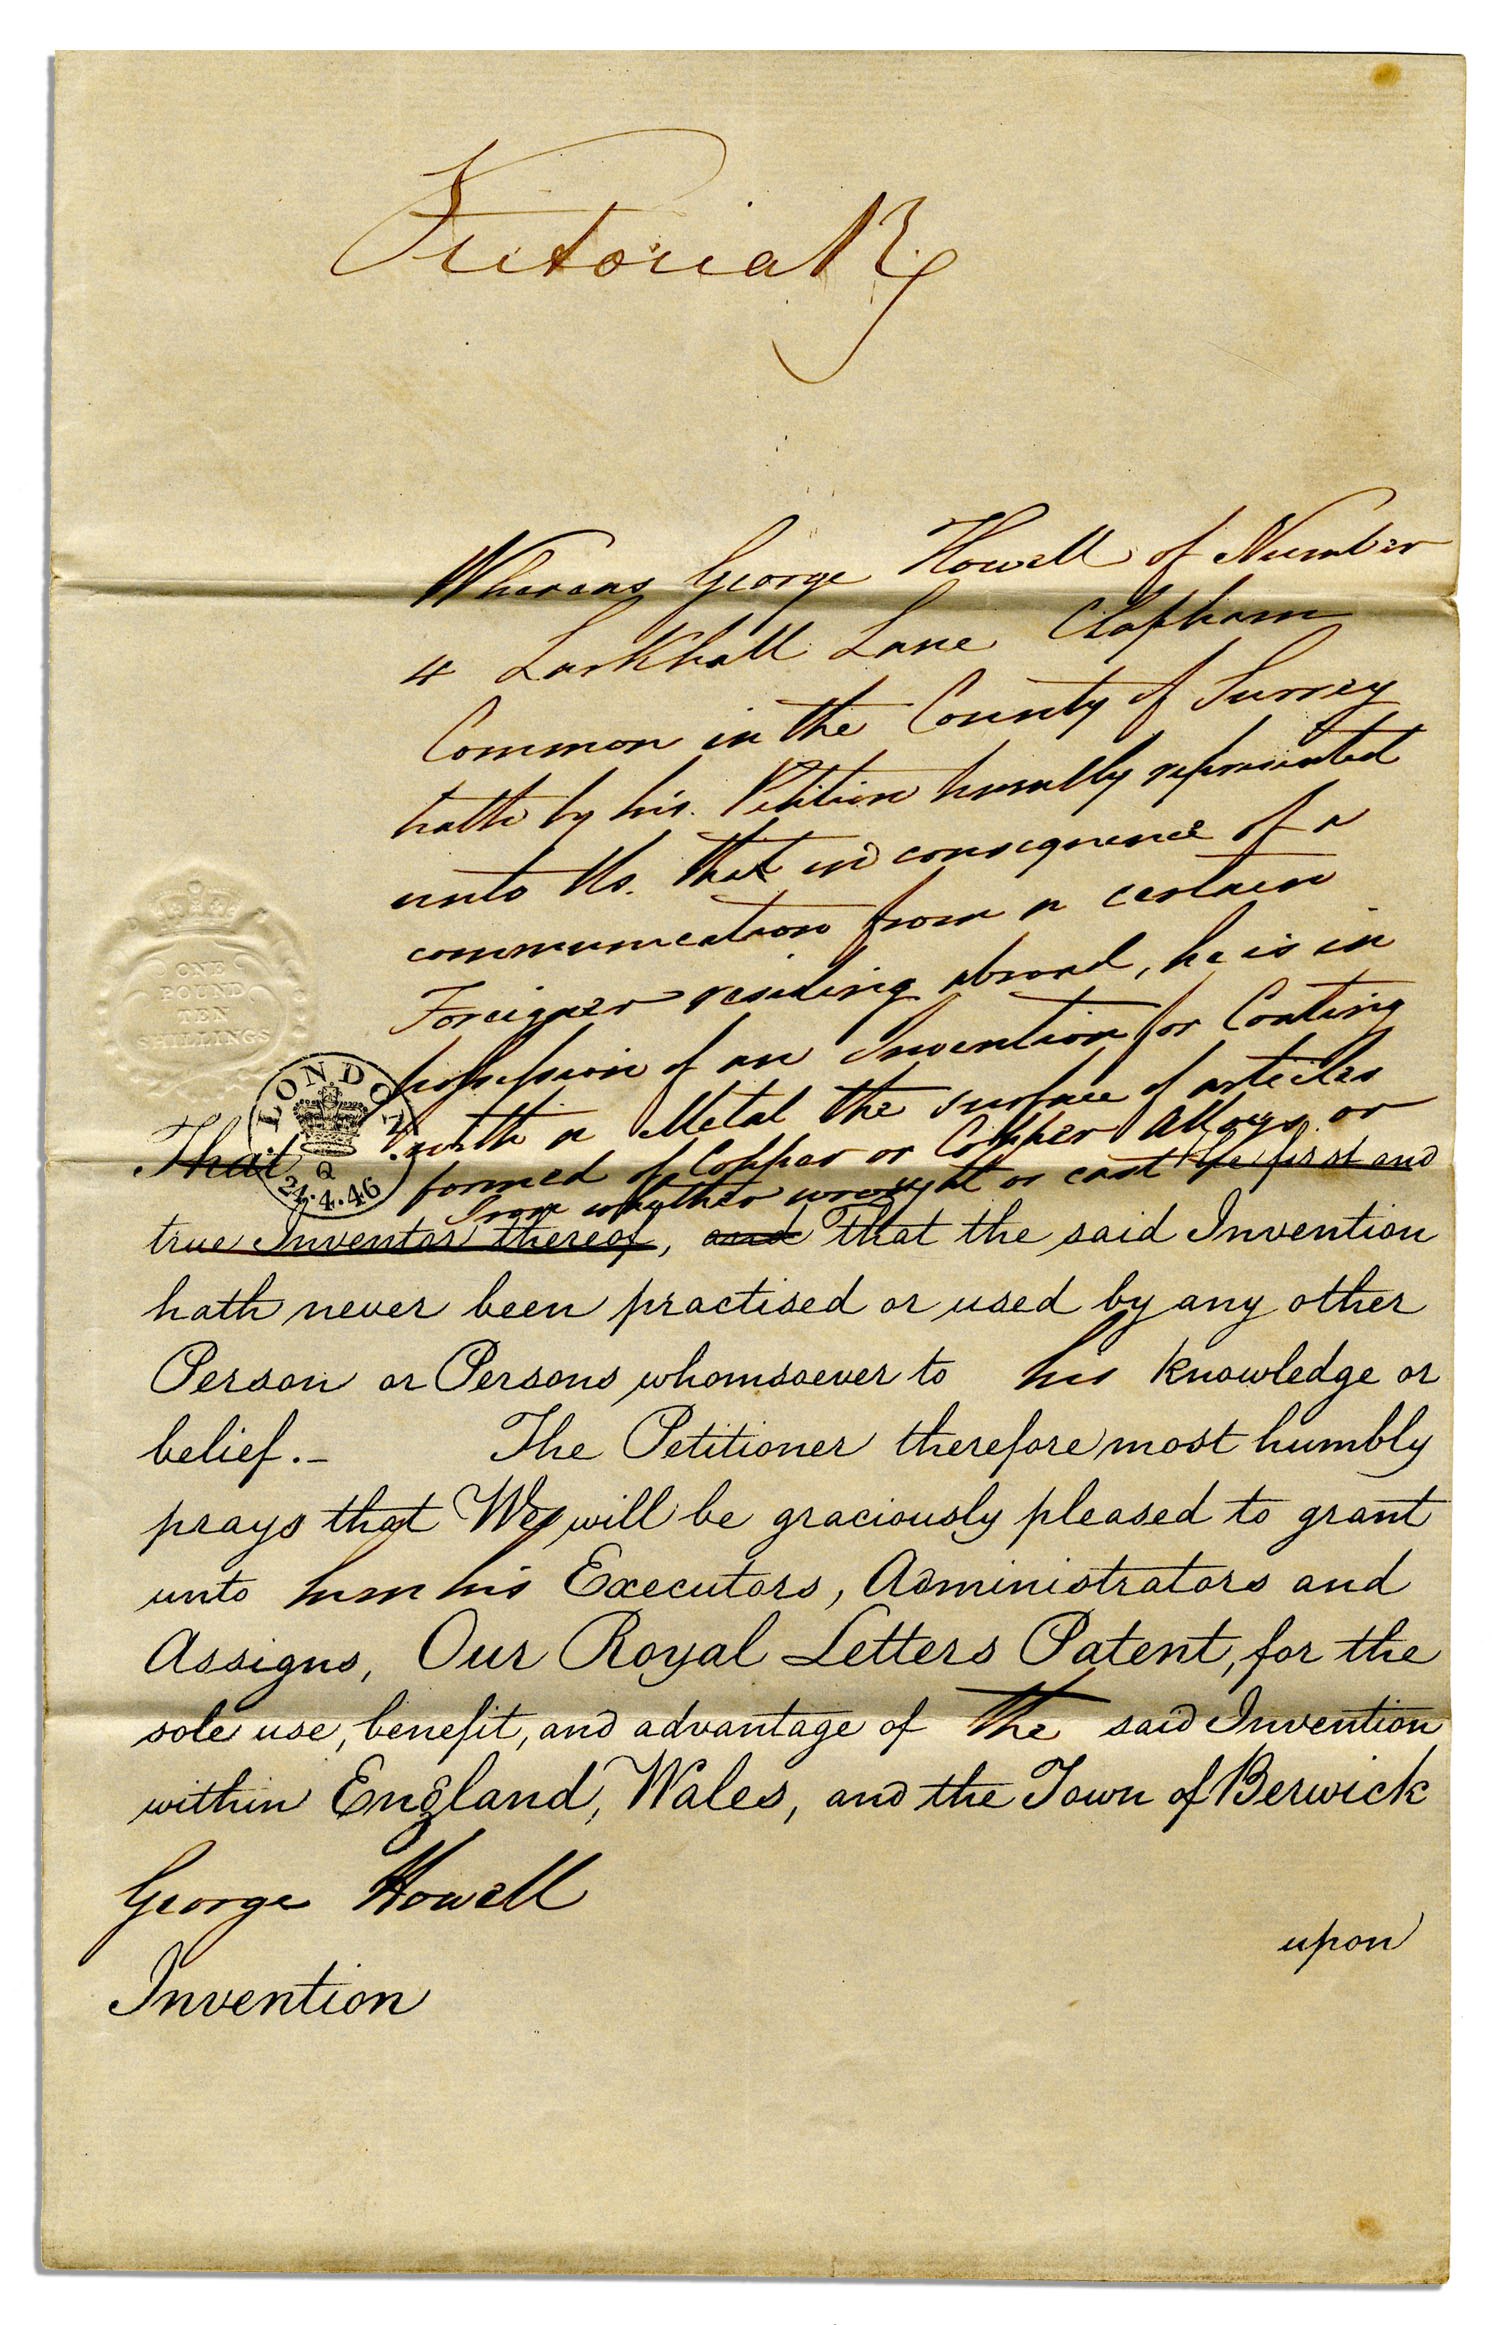 Victoria R
Whereas George Howell of Number
4 Larkhall Lane Clapham
Common in the County of Surrey
hath by his Petition humbly represented
unto Us. that in consequence of a
communication from a certain
Foreigner residing abroad, he is in
possession of an Invention for Coating
with a Metal the surface of articles
formed of Copper or Copper Alloys or
Iron whether wrought or cast
ONE
POUND
TEN
SHILLINGS
LONDON
Q
24.4.46
That he is the first and
true Inventor thereof, and That the said Invention
hath never been practised or used by any other
Person or Persons whomsoever to his knowledge or
belief.- The Petitioner therefore most humbly
prays that We will be graciously pleased to grant
unto him his Executors, Administrators and
Assigns, Our Royal Letters Patent, for the
sole use, benefit, and advantage of the said Invention
within England, Wales, and the Town of Berwick
George Howell
upon
Invention